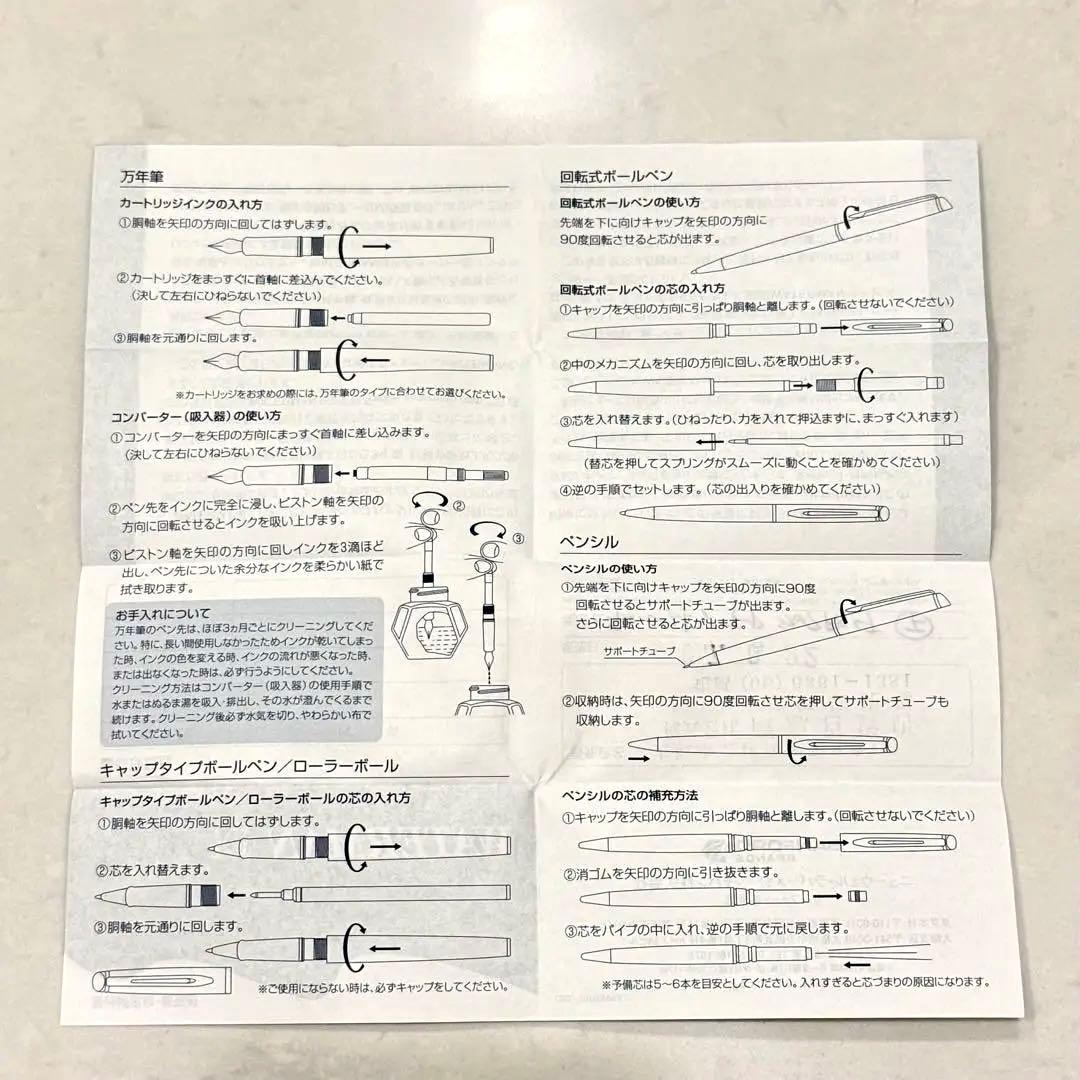 万年筆
カートリッジインクの入れ方
①胴軸を矢印の方向に回してはずします。
②カートリッジをまっすぐに首軸に差込んでください。
(決して左右にひねらないでください)
③胴軸を元通りに回します。
※カートリッジをお求めの際には、万年筆のタイプに合わせてお選びください。
コンバーター(吸入器)の使い方
①コンバーターを矢印の方向にまっすぐ首軸に差し込みます。
(決して左右にひねらないでください)
②ペン先をインクに完全に浸し、ピストン軸を矢印の
方向に回転させるとインクを吸い上げます。
②
③ピストン軸を矢印の方向に回しインクを3滴ほど
出し、ペン先についた余分なインクを柔らかい紙で
拭き取ります。
③
お手入れについて
万年筆のペン先は、ほぼ3ヵ月ごとにクリーニングしてくだ
さい。特に、長い間使用しなかったためインクが乾いてしまっ
た時、インクの色を変える時、インクの流れが悪くなった時、
または出なくなった時は、必ず行うようにしてください。
クリーニング方法はコンバーター(吸入器)の使用手順で
水またはぬるま湯を吸入・排出し、その水が澄んでくるまで
続けます。クリーニング後必ず水気を切り、やわらかい布で
拭いてください。
キャップタイプボールペン/ローラーボール
キャップタイプボールペン/ローラーボールの芯の入れ方
①胴軸を矢印の方向に回してはずします。
②芯を入れ替えます。
③胴軸を元通りに回します。
※ご使用にならない時は、必ずキャップをしてください。
回転式ボールペン
回転式ボールペンの使い方
先端を下に向けキャップを矢印の方向に
90度回転させると芯が出ます。
回転式ボールペンの芯の入れ方
①キャップを矢印の方向に引っぱり胴軸と離します。(回転させないでください)
②中のメカニズムを矢印の方向に回し、芯を取り出します。
③芯を入れ替えます。(ひねったり、力を入れて押込まずに、まっすぐ入れます)
(替芯を押してスプリングがスムーズに動くことを確かめてください)
④逆の手順でセットします。(芯の出入りを確かめてください)
ペンシル
ペンシルの使い方
①先端を下に向けキャップを矢印の方向に90度
回転させるとサポートチューブが出ます。
さらに回転させると芯が出ます。
サポートチューブ
②収納時は、矢印の方向に90度回転させ芯を押してサポートチューブも
収納します。
ペンシルの芯の補充方法
①キャップを矢印の方向に引っぱり胴軸と離します。(回転させないでください)
②消ゴムを矢印の方向に引き抜きます。
③芯をパイプの中に入れ、逆の手順で元に戻します。
※予備芯は5~6本を目安としてください。入れすぎると芯づまりの原因になります。